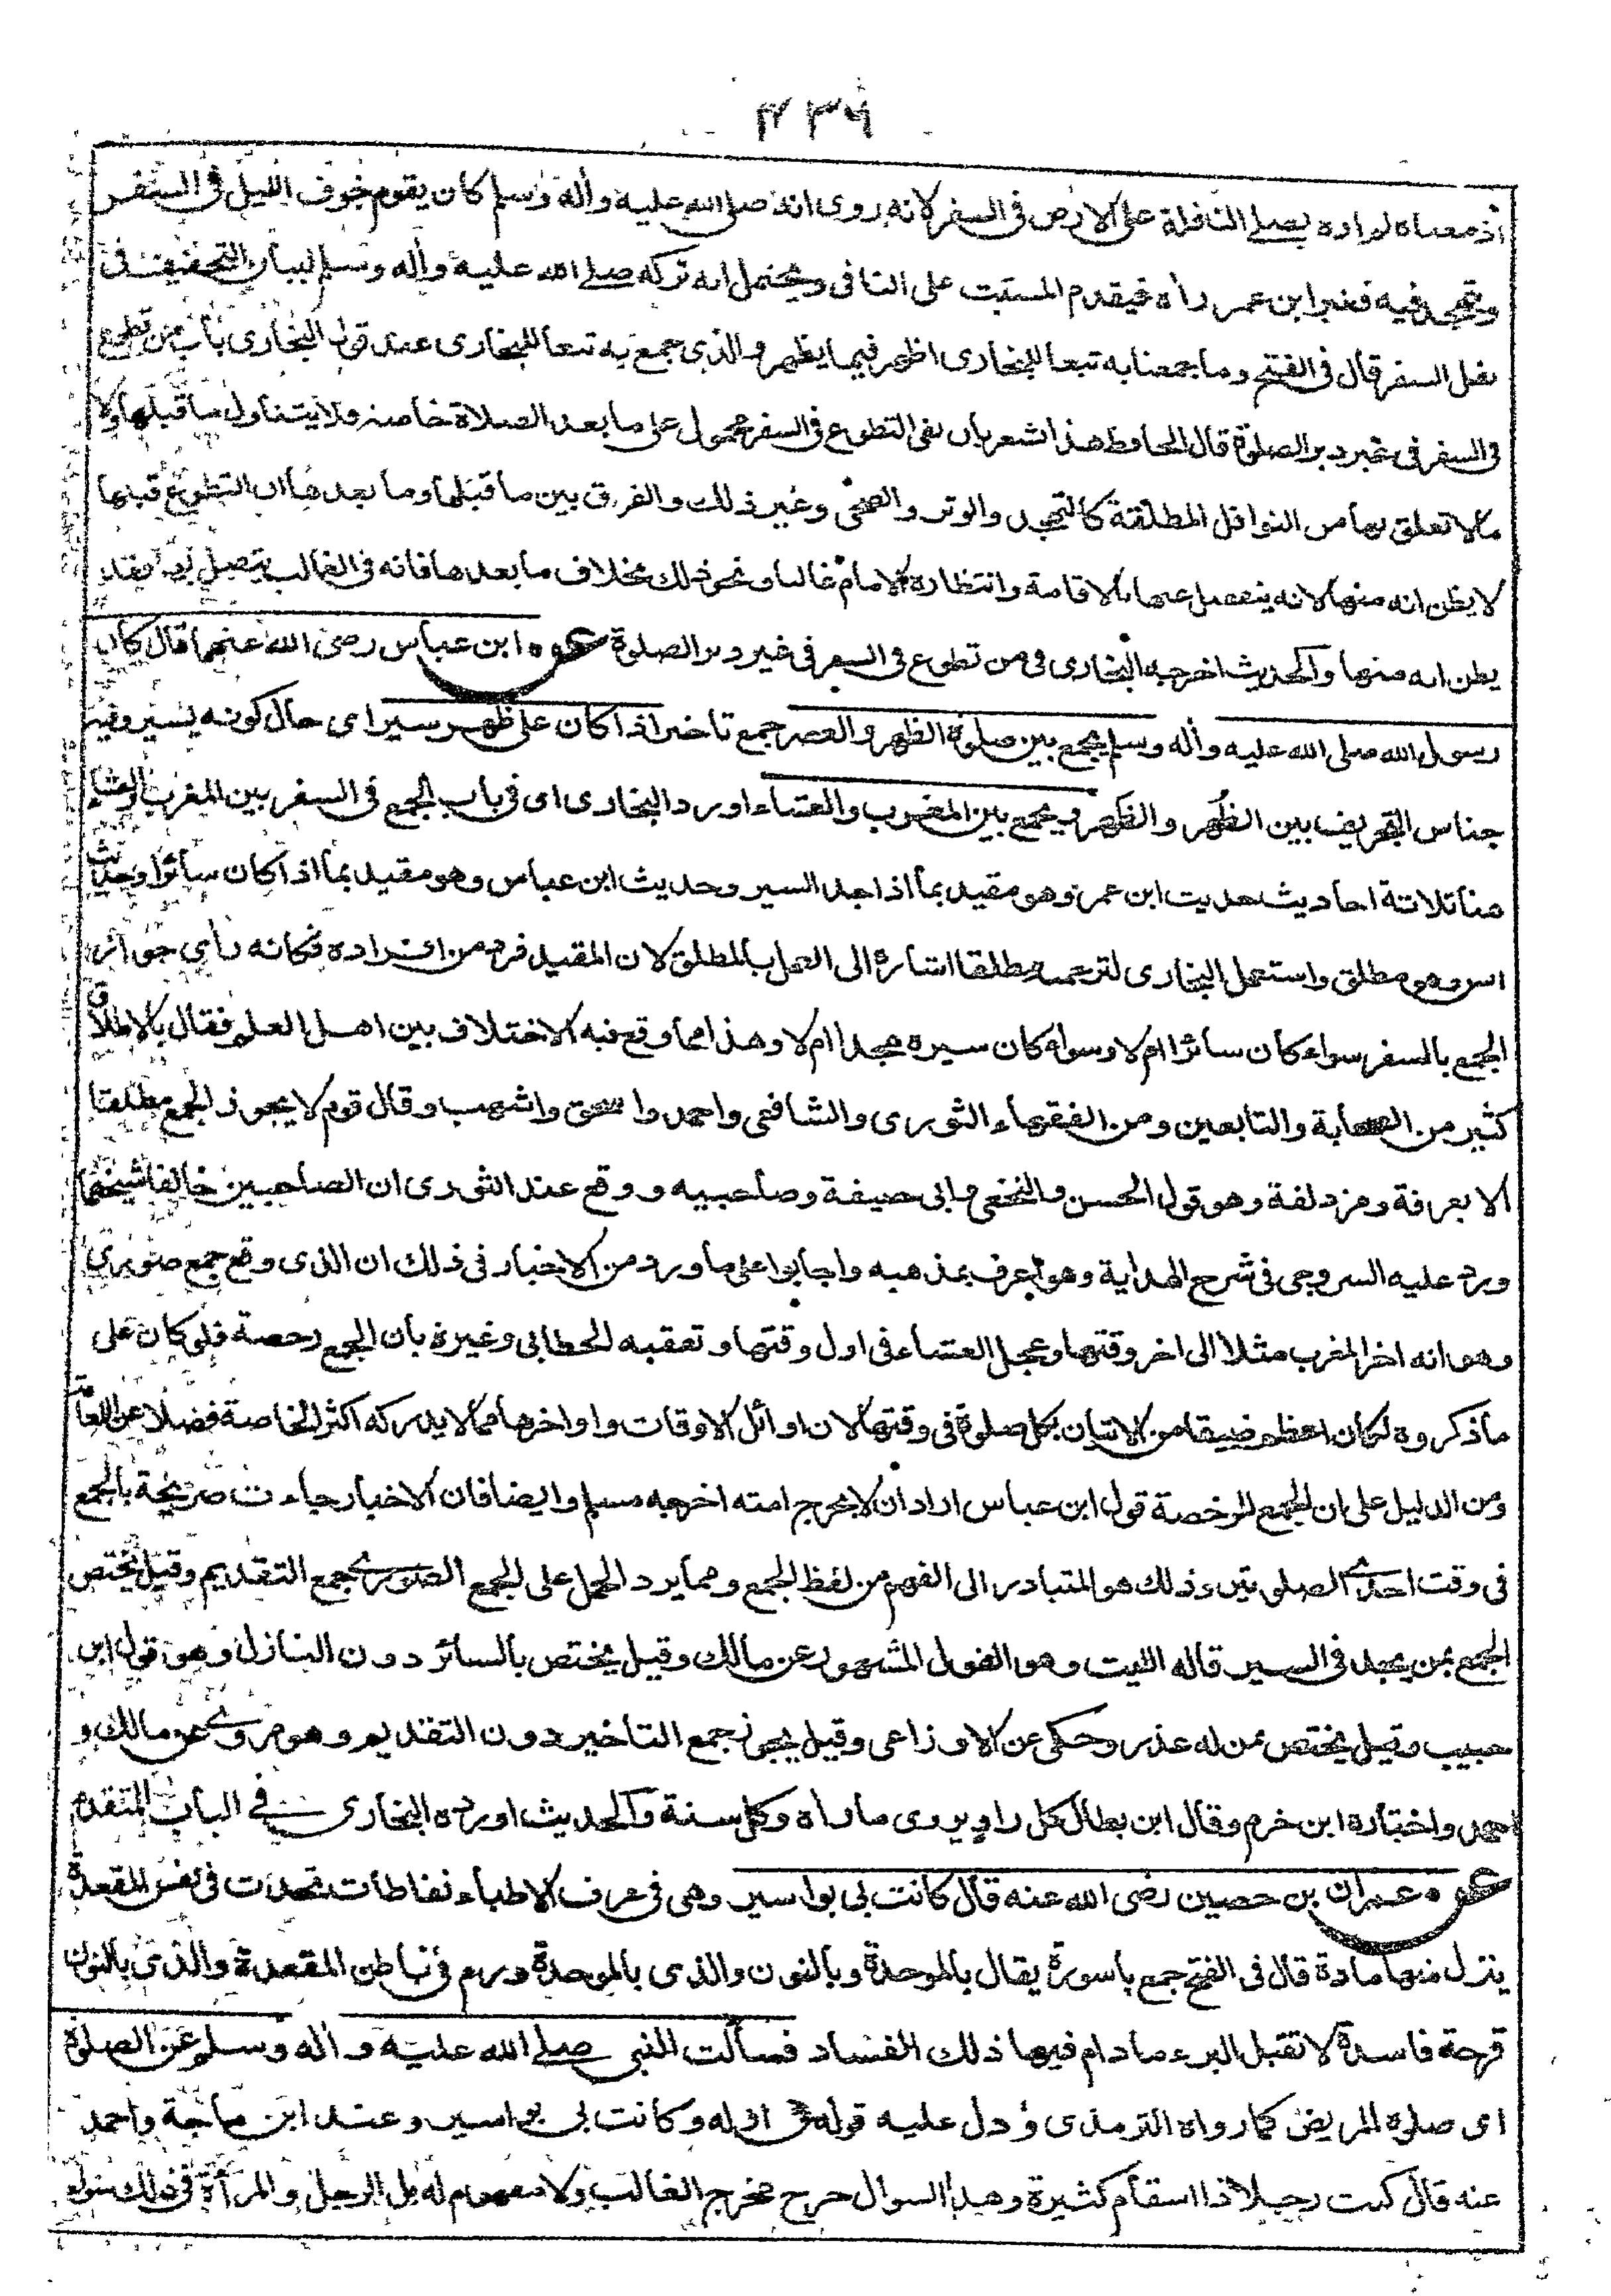 ٤٣٦
اذ معناه لم اره يصلى النافلة على الارض فى السفر لانه روى انه صلى الله عليه وأله وسلم كان يقوم جوف الليل فى السفر
ويتهجد فيه فغير ابن عمر رأه فيقدم المثبت على النافى ويحتمل انه تركه صلى الله عليه وأله وسلم لبيان التخفيف فى
نفل السفر قال فى الفتح وما جمعنا به تبعا للبخارى اظهر فيما يظهر والذى جمع به تبعا للبخارى عند قول البخارى باب من تطوع
فى السفر فى غير دبر الصلوة قال الحافظ هذا اشعر بان نفى التطوع فى السفر محمول على ما بعد الصلاة خاصة فلا يتناول ما قبلها ولا
مالا تعلق بها من النوافل المطلقة كالتهجد والوتر والضحى وغير ذلك والفرق بين ما قبلها وما بعدها ان التطوع قبلها
لا يظن انه منها لانه ينفصل عنها بالاقامة وانتظارة الامام غالبا ونحو ذلك بخلاف ما بعدها فانه فى الغالب يتصل بها فقد
يظن انه منها والحديث اخرجه البخارى فى من تطوع فى السفر فى غير دبر الصلوة عن ابن عباس رضى الله عنهما قال كان
رسول الله صلى الله عليه وأله وسلم يجمع بين صلوة الظهر والعصر جمع تاخير اذا كان على ظهر سير اى حال كونه يسير وفيه
جناس التحريف بين الظُهر والظَهر ويجمع بين المغرب والعشاء اورد البخارى اى فى باب الجمع فى السفر بين المغرب والعشاء
هنا ثلاثة احاديث حديث ابن عمر وهو مقيد بما اذا جد السير وحديث ابن عباس وهو مقيد بما اذا كان سائرا وحديث
انس وهو مطلق واستعمل البخارى لترجمة مطلقا اشارة الى العمل بالمطلق لان المقيد فرد من افراده فكانه رأى جواز
الجمع بالسفر سواء كان سائرا ام لا وسواء كان سيره مجدا ام لا وهذا مما وقع فيه الاختلاف بين اهل العلم فقال بالاطلاق
كثير من الصحابة والتابعين ومن الفقهاء الثورى والشافعى واحمد واسحق واشهب وقال قوم لا يجوز الجمع مطلقا
الا بعرفة ومزدلفة وهو قول الحسن والنخعى وابى حنيفة وصاحبيه ووقع عند الثورى ان الصاحبين خالفا شيخهما
ورد عليه السروجى فى شرح الهداية وهو اعرف بمذهبه واجابوا على ما ورد من الاخبار فى ذلك ان الذى وقع جمع صورى
وهو انه اخر المغرب مثلا الى اخر وقتها وعجل العشاء فى اول وقتها وتعقبه الخطابى وغيرة بان الجمع رخصة فلو كان على
ما ذكروه لكان اعظم ضيقا من الاتيان بكل صلوة فى وقتها لان اوائل الاوقات واواخرها مما لا يدركه اكثر الخاصة فضلا عن العامة
ومن الدليل على ان الجمع للرخصة قول ابن عباس اراد ان لا يحرج امته اخرجه مسلم وايضا فان الاخبار جاءت صريحة بالجمع
فى وقت احدى الصلوتين وذلك هو المتبادر الى الفهم من لفظ الجمع ومما يرد الحمل على الجمع الصورى جمع التقديم وقيل يختص
الجمع بمن يجد فى السير قاله الليث وهو القول المشهور عن مالك وقيل يختص بالسائر دون النازل وهو قول ابن
حبيب وقيل يختص بمن له عذر وحكى عن الاوزاعى وقيل يجوز جمع التأخير دون التقديم وهو مروى عن مالك و
احمد واختارة ابن حزم وقال ابن بطال كل راو يروى ما رأه وكل سنة والحديث اورده البخارى فى الباب المتقدم
عن عمران بن حصين رضى الله عنه قال كانت لى بواسير وهى فى عرف الاطباء نفاطات تحدث فى نفس المقعدة
ينزل منها مادة قال فى الفتح جمع باسورة يقال بالموحدة وبالنون والذى بالموحدة ورم فى باطن المقعدة والذى بالنون
قرحة فاسدة لا تقبل البرء ما دام فيها ذلك الفساد فسألت النبى صلى الله عليه وأله وسلم عن الصلوة
اى صلوة المريض كما رواه الترمذى ودل عليه قوله فى اوله وكانت لى بواسير وعند ابن ماجة واحمد
عنه قال كنت رجلا ذا اسقام كثيرة وهذا السوال خرج مخرج الغالب ولا مفهوم له بل الرجل والمرأة فى ذلك سواء